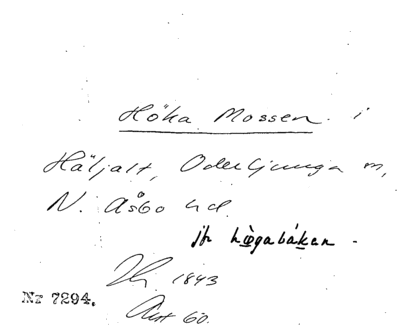 Höka Mossen i
Häljalt, Oderljunga sn,
N. Åsbo hd.
jfr högabákan.
1843
Nr 7294.
Akt 60.